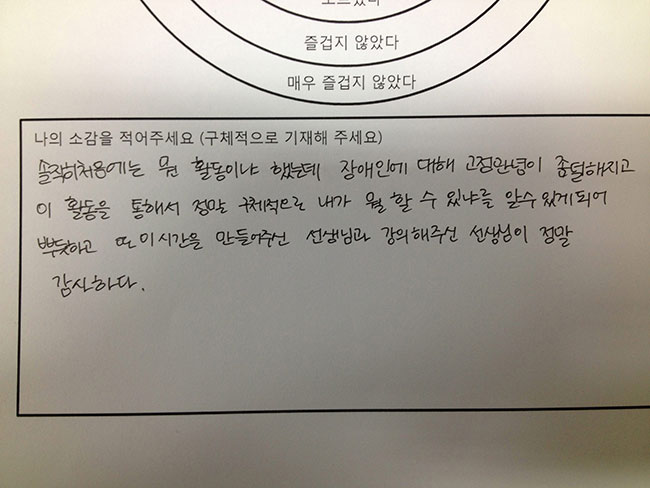 모르겠다
즐겁지 않았다
매우 즐겁지 않았다
나의 소감을 적어주세요 (구체적으로 기재해 주세요)
솔직히처음에는 뭔 활동이냐 했는데 장애인에 대해 고정관념이 좀덜해지고
이 활동을 통해서 정말 구체적으로 내가 뭘 할 수 있냐를 알수 있게되어
뿌듯하고 또 이시간을 만들어주신 선생님과 강의해주신 선생님이 정말
감사하다.